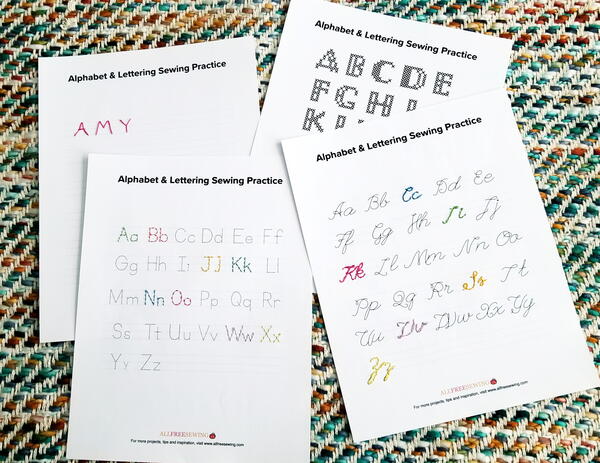 Alphabet & Lettering Sewing Practice
A M Y
Alphabet & Lettering Sewing Practice
A B C D E
F G H I
K
Alphabet & Lettering Sewing Practice
Aa Bb Cc Dd Ee Ff
Gg Hh Ii Jj Kk Ll
Mm Nn Oo Pp Qq Rr
Ss Tt Uu Vv Ww Xx
Yy Zz
ALLFREESEWING
For more projects, tips and inspiration, visit www.allfreesewing.com
Alphabet & Lettering Sewing Practice
Aa Bb Cc Dd Ee
Ff Gg Hh Ii Jj
Kk Ll Mm Nn Oo
Pp Qq Rr Ss Tt
Uu Vv Ww Xx Yy
Zz
ALLFREESEWING
For more projects, tips and inspiration, visit www.allfreesewing.com